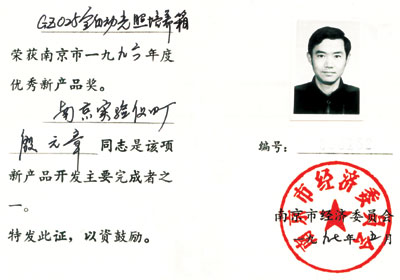 GZ025全自动光照培养箱
荣获南京市一九九六年度
优秀新产品奖。
南京实验仪四厂
殷元章 同志是该项
新产品开发主要完成者之
一。
特发此证，以资鼓励。
编号：
南京市经济委员会
南京市经济委员会
一九九七年 月